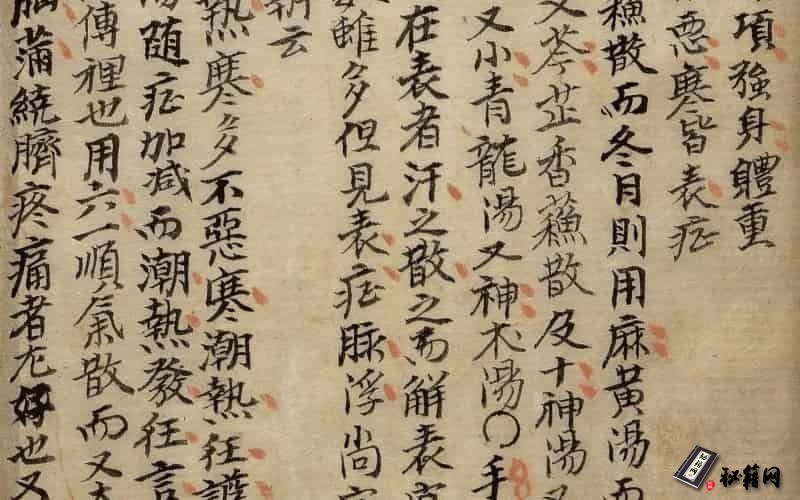 項強身體重
惡寒皆表症
蘓散而冬月則用麻黃湯而
又芩芷香蘓散及十神湯又
又小青龍湯又神朮湯○手
在表者汗之散之而解表
雖多但見表症脉浮尚
朝云
熱寒多不惡寒潮熱狂譫
湯随症加减而潮熱發狂言
傳裡也用六一順氣散而又
脹滿繞臍疼痛者尤好也又
秘籍网